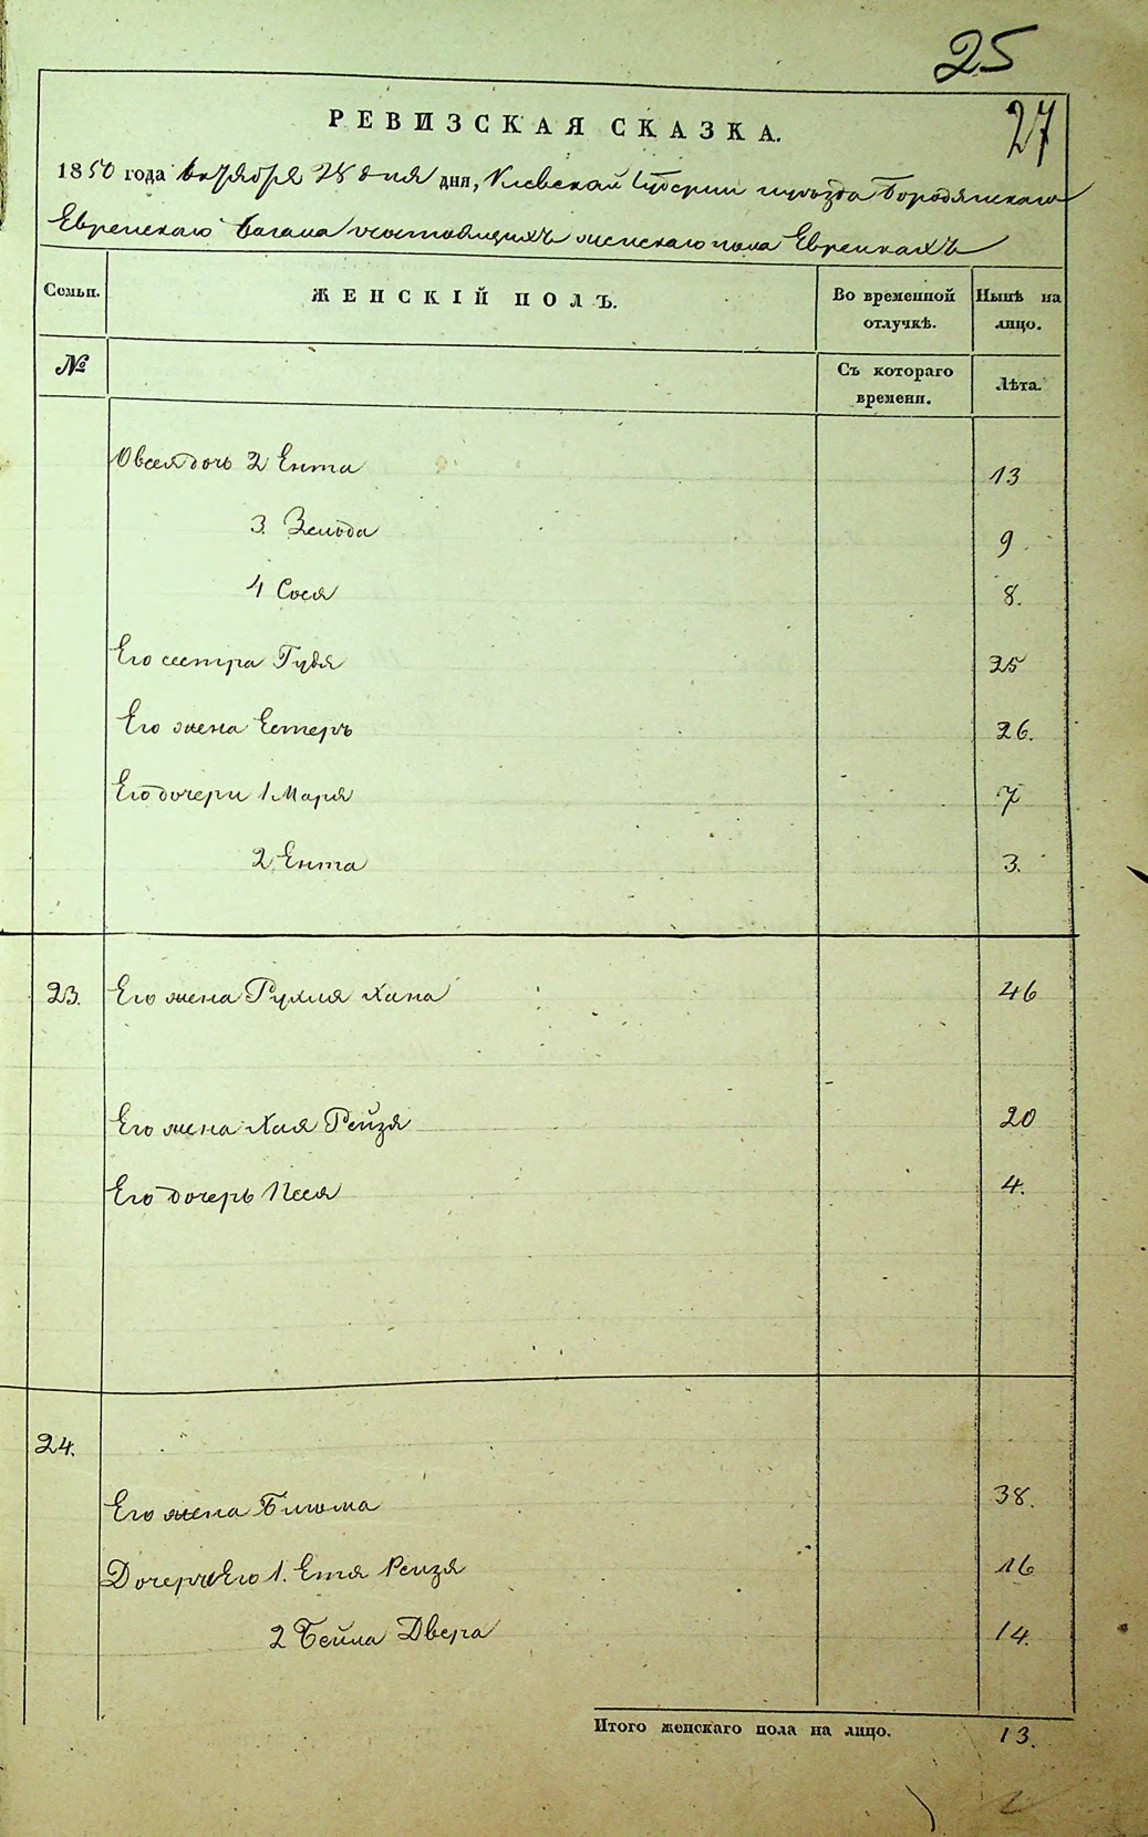 25
27
РЕВИЗСКАЯ СКАЗКА.
1850 года Октября 28 дня дня, Киевской Губернии и уѣзда Бородянскаго
Еврейскаго Кагала о состоящихъ женскаго пола Еврейкахъ
Семьи. ЖЕНСКІЙ ПОЛЪ. Во временной отлучкѣ. Нынѣ на лицо.
№ Съ котораго времени. Лѣта.
Овсея дочь 2 Ента 13
3. Зельда 9
4 Сося 8.
Его сестра Гудя 25
Его жена Естеръ 26.
Его дочери 1 Маря 7
2 Ента 3.
23. Его жена Рухля Хана 46
Его жена Хая Рейзя 20
Его дочерь Песя 4.
24.
Его жена Блюма 38.
Дочери Его 1. Етя Рейзя 16
2 Бейла Двера 14.
Итого женскаго пола на лицо. 13.